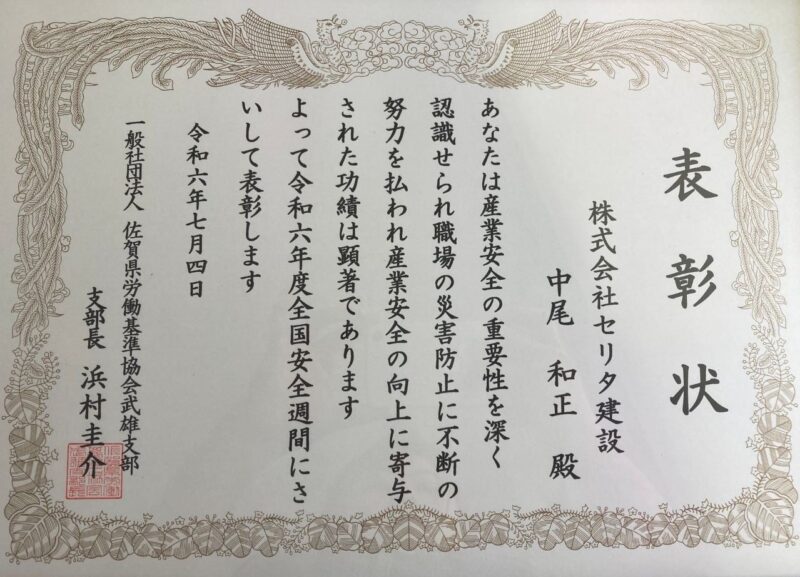 表彰状
株式会社セリタ建設
中尾 和正 殿
あなたは産業安全の重要性を深く
認識せられ職場の災害防止に不断の
努力を払われ産業安全の向上に寄与
された功績は顕著であります
よって令和六年度全国安全週間にさ
いして表彰します
令和六年七月四日
一般社団法人 佐賀県労働基準協会武雄支部
支部長 浜村圭介